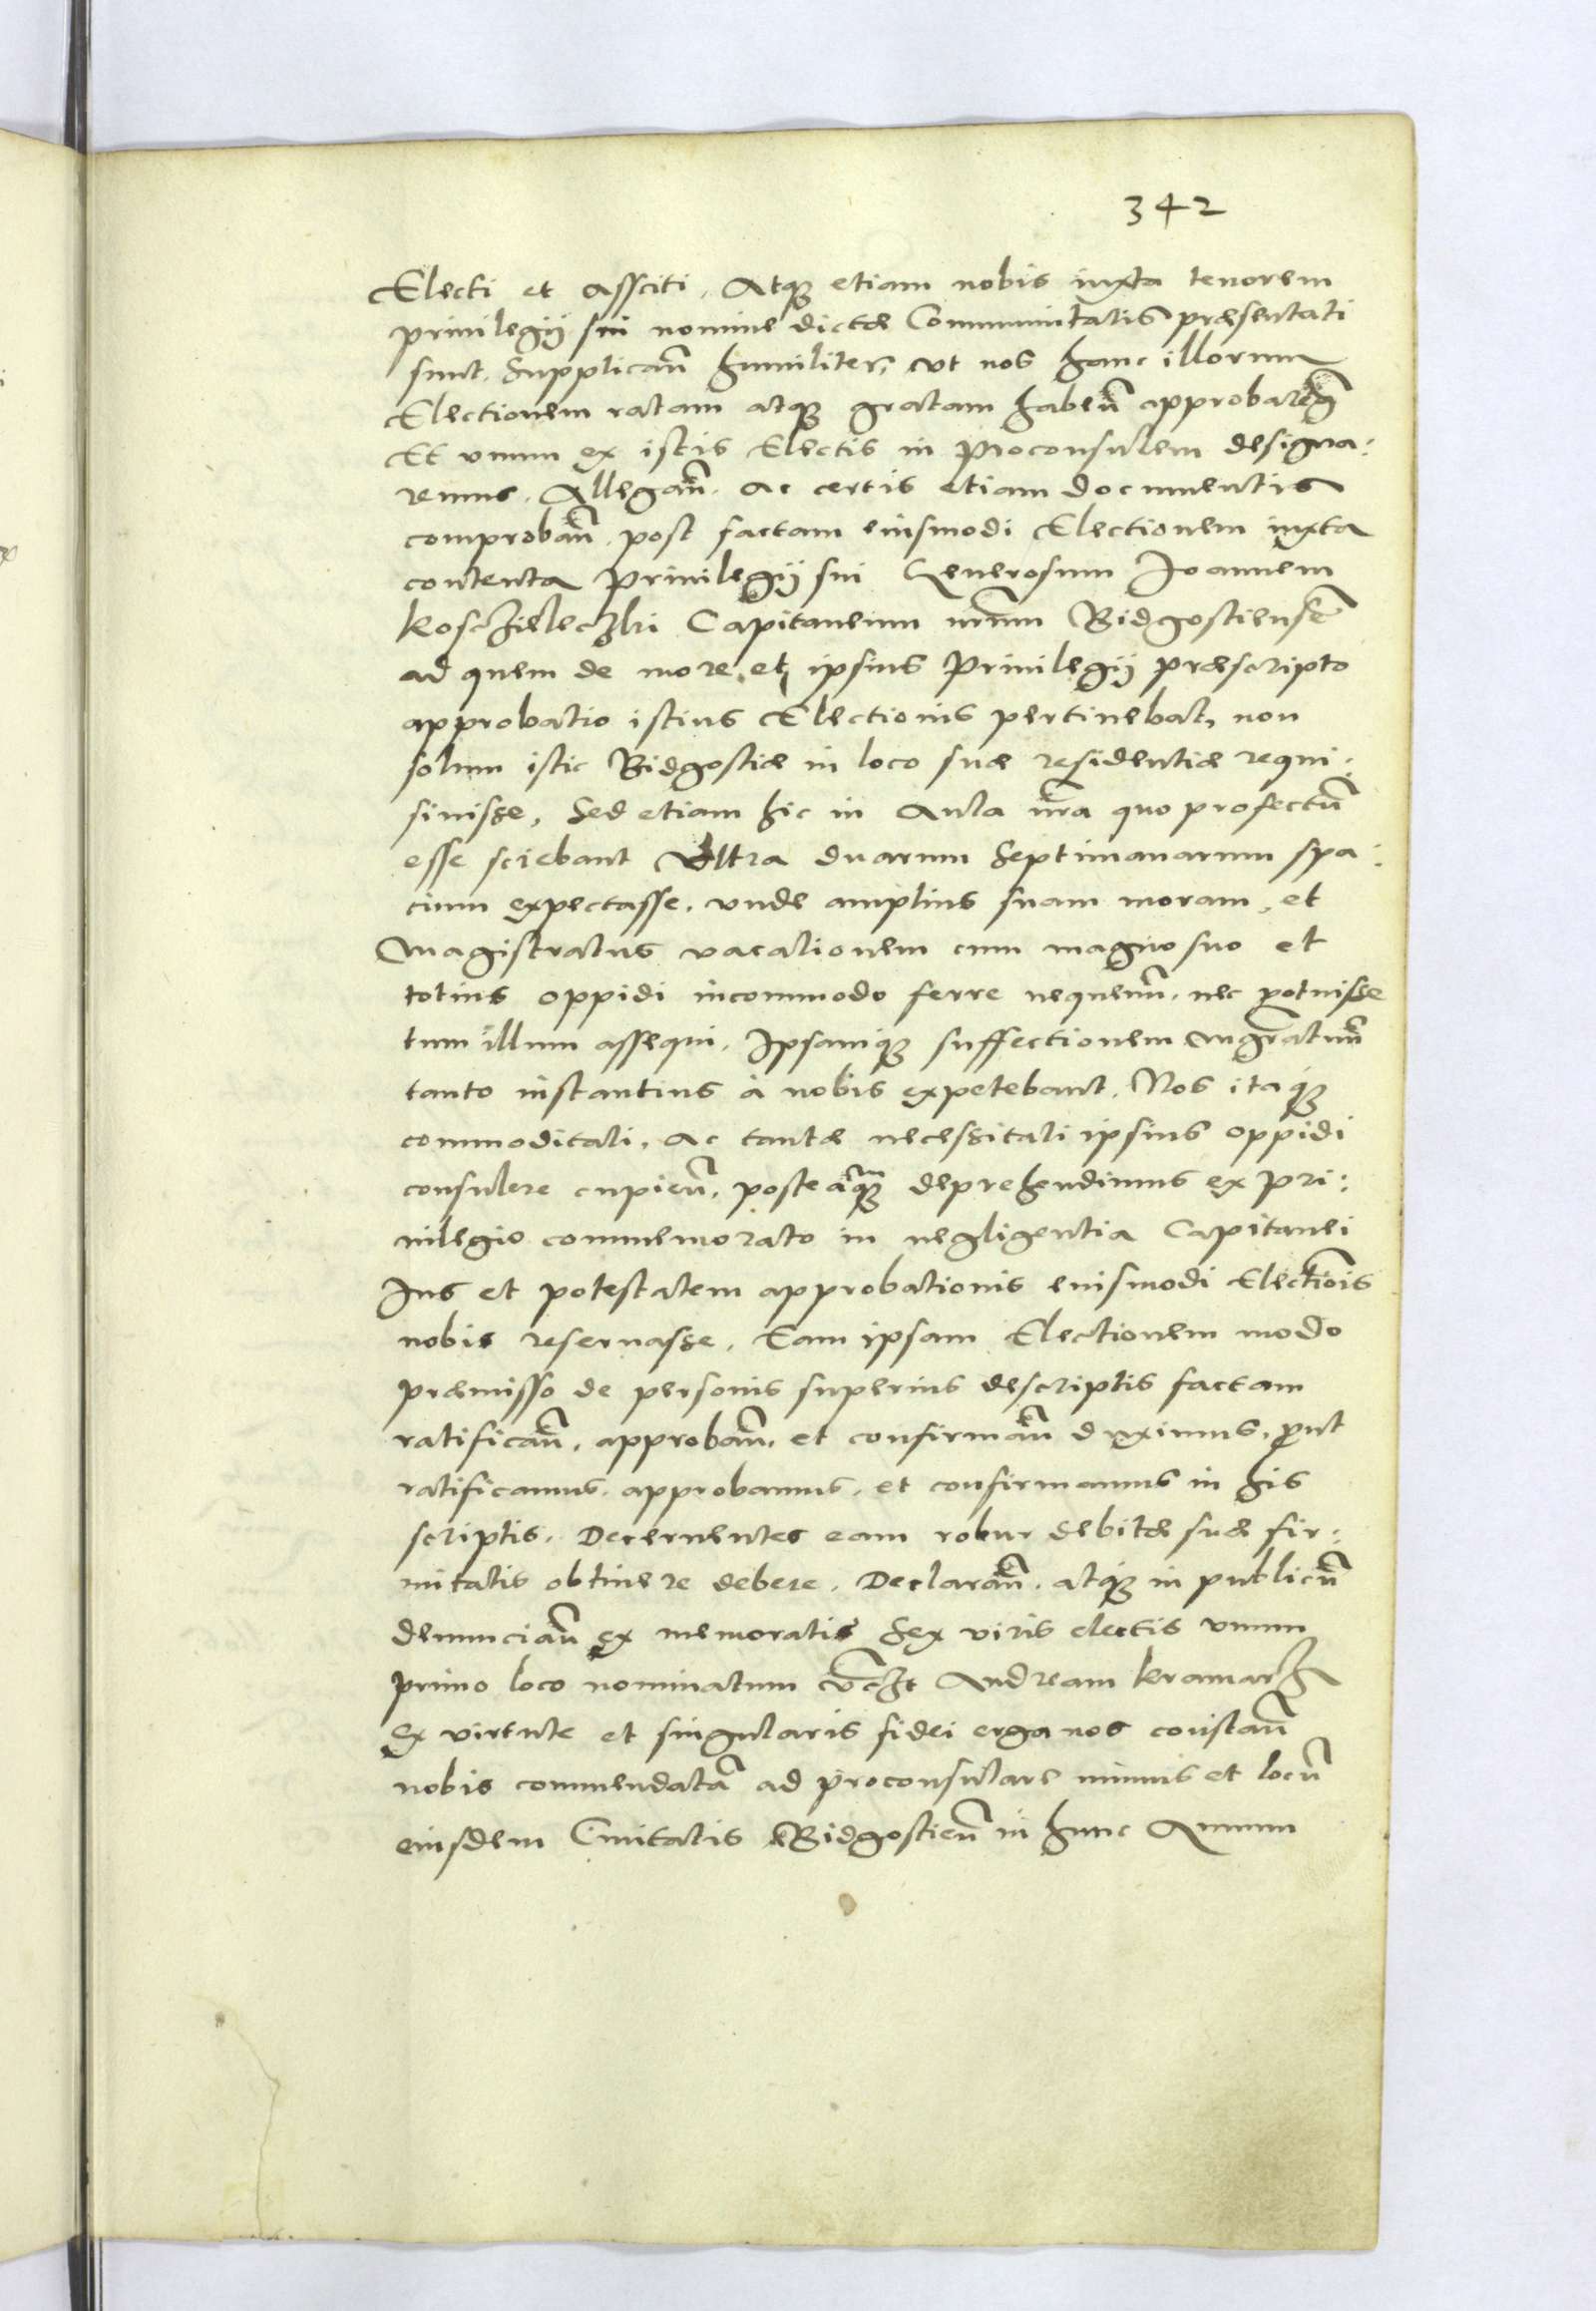 342
Electi et assciti, Atq̃ etiam nobis iuxta tenorem
priuilegij sui nomine dictæ Communitatis præsentati
sunt. Supplicañ humiliter, vt nos hanc illorum
Electionem ratam atq̃ gratam habeñ approbarem̃
Et vnum ex istis Electis in Proconsulem designa:
remus. Allegañ. ac certis etiam documentis
comprobañ. post factam eiusmodi Electionem iuxta
contenta Priuilegij sui Generosum Ioannem
Kosczieleczki Capitaneum nr̃um Bidgostiensẽ
ad quem de more, et ipsius Priuilegij præscripto
approbatio istius Electionis pertinebat, non
solum istic Bidgostiæ in loco suæ residentiæ requi:
siuisse, Sed etiam hic in Aula nr̃a quo profectũ
esse sciebant Vltra duarum Septimanarum spa:
cium expectasse. vnde amplius suam moram, et
Magistratus vacationem cum magno suo et
totius oppidi incommodo ferre nequeuñ. nec potuisse
tum illum assequi. Ipsamq̃ suffectionem mgr̃atuum
tanto instantius à nobis expetebant. Nos itaq̃
commoditati, ac tantæ necessitati ipsius oppidi
consulere cupieñ. posteaq̃ deprehendimus ex Pri:
uilegio commemorato in negligentia Capitanei
Ius et potestatem approbationis eiusmodi Electiõis
nobis reseruasse. Eam ipsam Electionem modo
præmisso de personis superius descriptis factam
ratificañ, approbañ, et confirmañ duximus, prout
ratificamus. approbamus. et confirmamus in his
scriptis. Decernentes eam robur debitæ suæ fir:
mitatis obtinere debere. Declarañ. atq̃ in publicũ
denunciañ ex memoratis Sex viris electis vnum
primo loco nominatum vczt Andream kramarz
ex virtute et singularis fidei erga nos constañ
nobis commendatã ad proconsulare munus et locũ
eiusdem Ciuitatis Bidgostieñ in hunc Annum